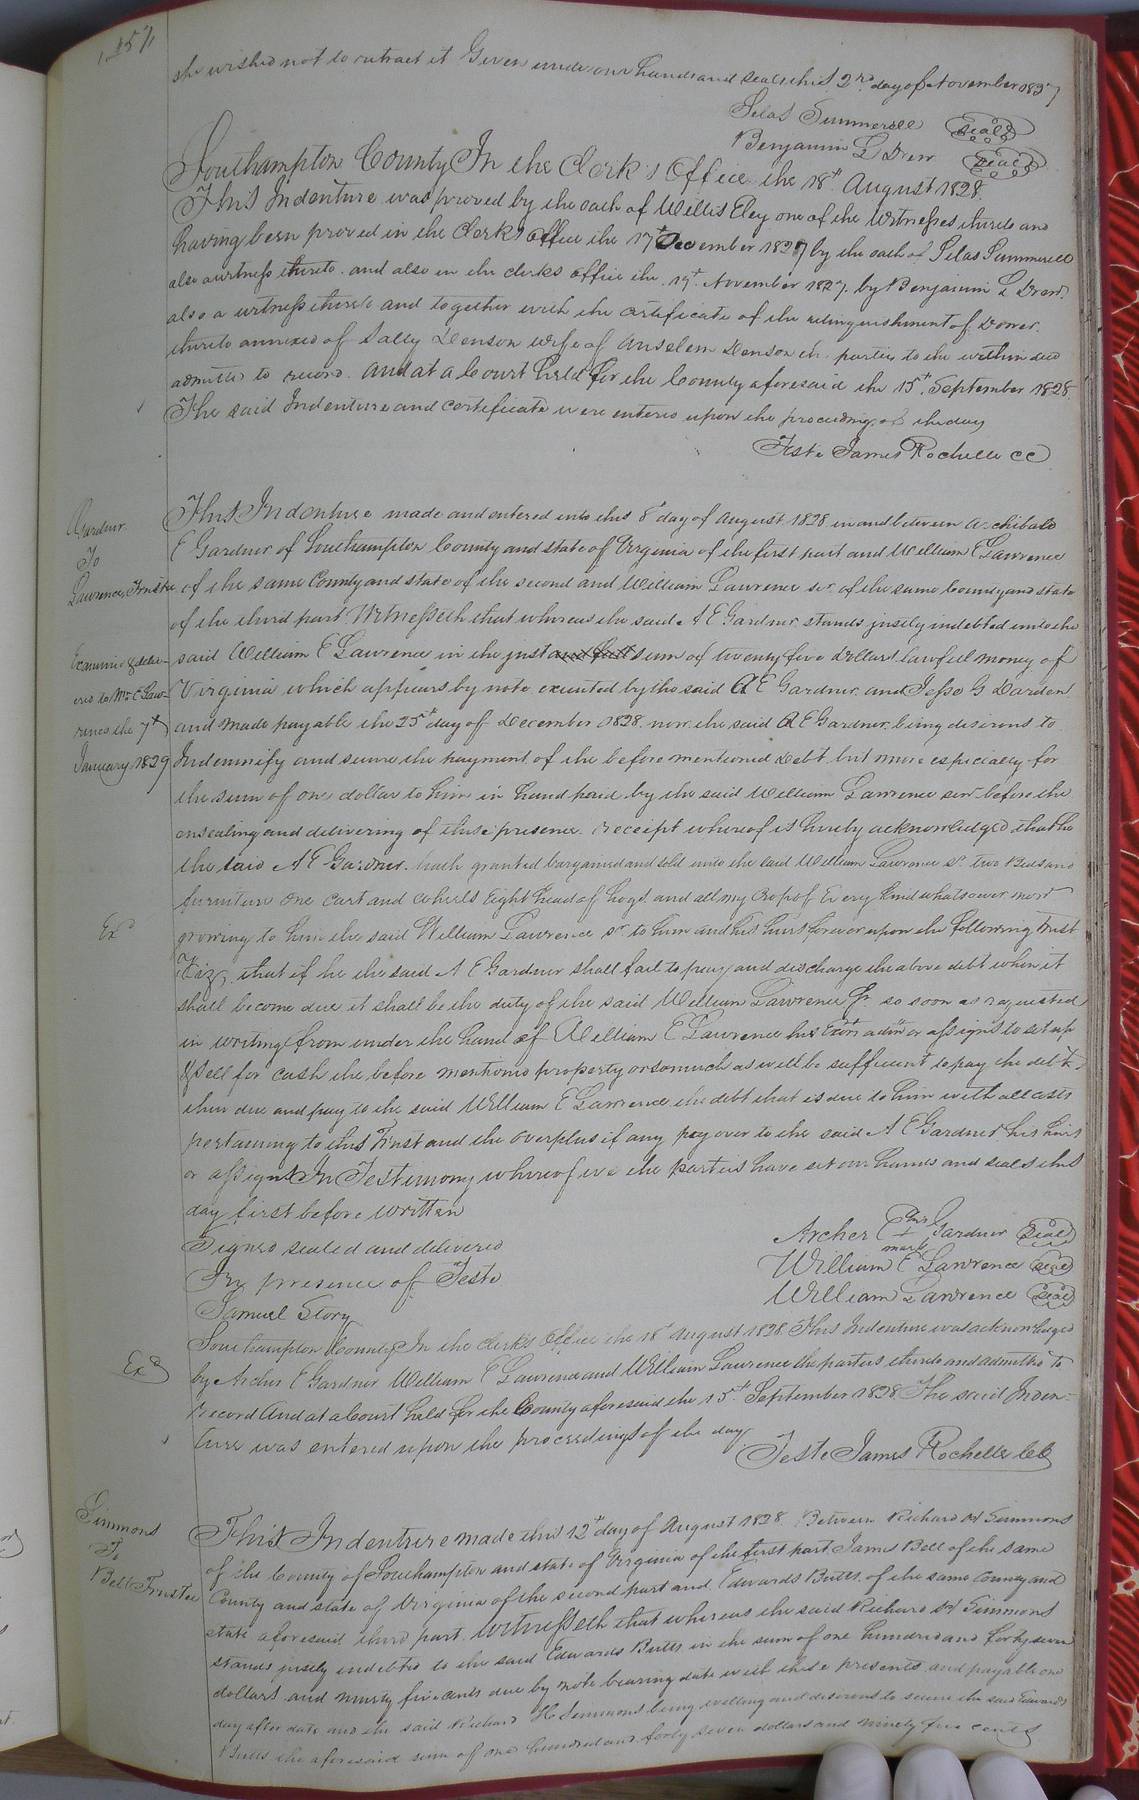 157
she wished not to retract it Given under our hands and seals this 2nd day of November 1827
Silas Summerell Seal
Benjamin L Drew Seal
Southampton County In the Clerk's Office the 18t August 1828
This Indenture was proved by the oath of Willis Eley one of the Witnesses thereto and
having been proved in the Clerks office the 17t December 1827 by the oath of Silas Summerell
also a witness thereto and also in the clerks office the 19t November 1827 by Benjamin L Drew
also a witness thereto and together with the certificate of the relinquishment of Dower
thereto annexed of Sally Denson wife of Anselem Denson ch. parties to the within deed
admitted to record. And at a Court held for the County aforesaid the 15t September 1828
The said Indenture and certificate were entered upon the proceedings of the day
Teste James Rochelle CC
Gardner
To
Lawrence Trustee
This Indenture made and entered into this 8t day of August 1828 in and between Archibald
E Gardner of Southampton County and state of Virginia of the first part and William E Lawrence
of the same County and state of the second and William Lawrence sr of the same County and state
of the third part Witnesseth that whereas the said A E Gardner stands justly indebted unto the
Examined & deliv-
ered to Wm E Law-
rence the 7th
January 1829
said William E Lawrence in the just and full sum of twenty five Dollars lawful money of
Virginia which appears by note executed by the said A E Gardner and Jesse G Darden
and made payable the 25t day of December 1828 now the said A E Gardner being desirous to
Indemnify and secure the payment of the before mentioned debt but more especially for
the sum of one dollar to him in hand paid by the said William Lawrence senr before the
ensealing and delivering of these presence receipt whereof is hereby acknowledged that he
the said A E Gardner hath granted bargained and sold unto the said William Lawrence sr two Beds and
furniture one cart and wheels Eight head of hogs and all my Crop of Every kind whatsoever now
Exd
growing to him the said William Lawrence sr to him and his heirs forever upon the following Trust
Viz, that if he the said A E Gardner shall fail to pay and discharge the above debt when it
shall become due it shall be the duty of the said William Lawrence Sr so soon as requested
in writing from under the hand of William E Lawrence his Exors admrs or assigns to set up
& sell for cash the before mentiond property or so much as will be sufficient to pay the debt
then due and pay to the said William E Lawrence the debt that is due to him with all costs
pertaining to this Trust and the overplus if any pay over to the said A E Gardner his heirs
or assigns In Testimony whereof we the parties have set our hands and seals this
day first before written
Signed sealed and delivered
In presence of Teste
Samuel Story
Archer E his mark Gardner Seal
William E Lawrence Seal
William Lawrence Seal
Exd
Southampton County In the clerk's Office the 18t August 1828 This Indenture was acknowledged
by Archer E Gardner William E Lawrence and William Lawrence the parties thereto and admitted to
record And at a Court held for the County aforesaid the 15th September 1828 The said Inden-
ture was entered upon the proceedings of the day
Teste James Rochelle CC
Simmons
To
Bell Trustee
This Indenture made this 12t day of August 1828 Between Richard H Simmons
of the County of Southampton and state of Virginia of the first part James Bell of the same
County and state of Virginia of the second part and Edwards Butts of the same County and
state aforesaid third part Witnesseth that whereas the said Richard H Simmons
stands justly indebted to the said Edwards Butts in the sum of one hundred and forty seven
dollars and ninety five cents due by note bearing date with these presents and payable one
day after date and the said Richard H Simmons being willing and desirous to secure the said Edwards
Butts the aforesaid sum of one hundred and forty seven dollars and ninety five cents